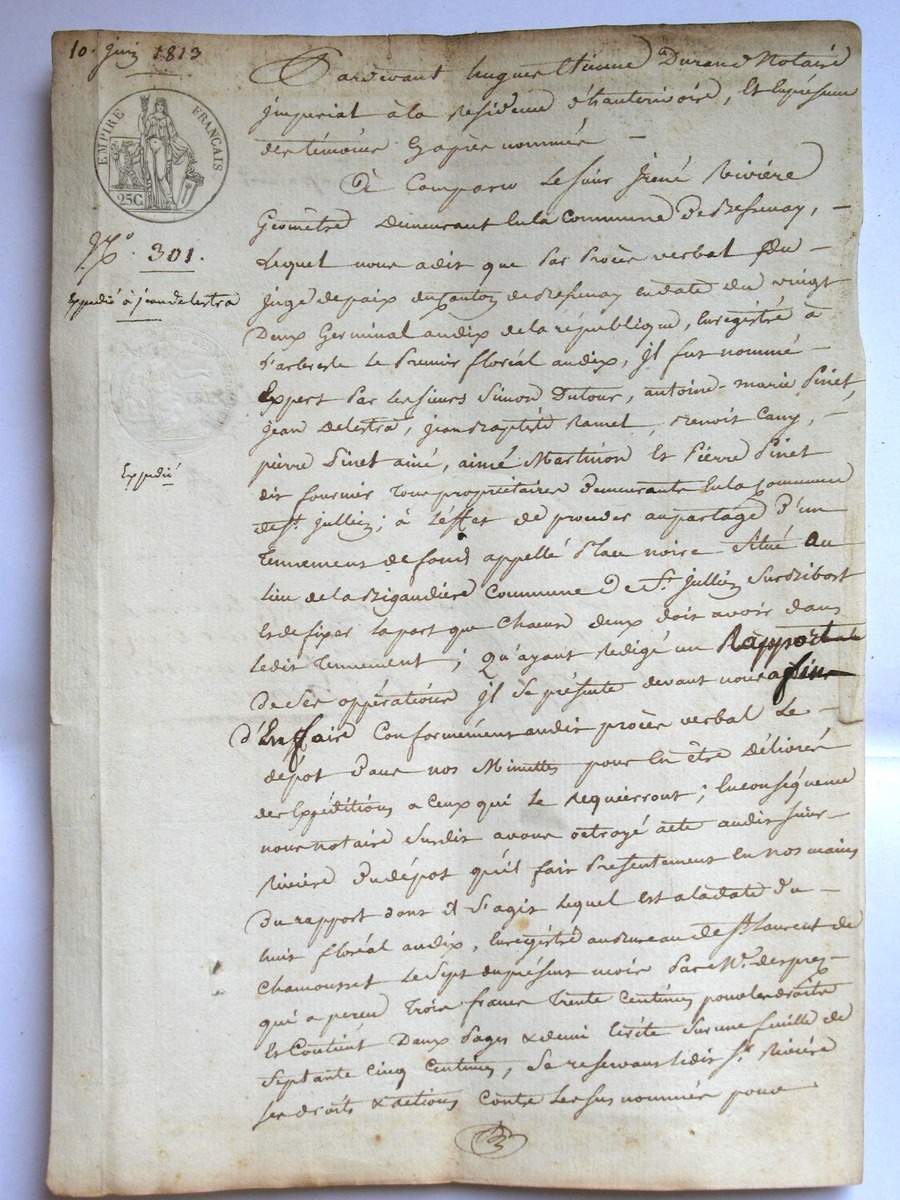 10. juin 1813
EMPIRE FRANÇAIS
25C
N.º 301.
Expedié à jean delestra
Expedié
Pardevant hugues Etienne Durand Notaire
jmperial à la Residence d'hauterivoire, Et En présence
des témoins Cy après nommés —
A Comparu le sieur jrené Rivière
Géomètre Demeurant En la Commune de Bessenay, —
Lequel nous a dit que Par Procès verbal du —
juge de paix du Canton de Bessenay en date du vingt
Deux Germinal an dix de la république, Enregistré à
l'arbresle le Premier floréal an dix, jl fut nommé —
Expert Par les sieurs Simon Dutour, antoine-marie Pinet,
jean Delestra, jean Baptiste Ramel, Benoit Cany, —
pierre Pinet ainé, aimé Martinon Et Pierre Pinet
dit fournier Tous propriétaires Demeurants En la Commune
de St. jullien; à l'éffet de proceder au partage D'un
Tennement de fond appellé Plan noire Situé au
lieu de la Rigaudière Commune De St. jullien Sur Bibost
Et de fixer la part que Chacun deux doit avoir dans
Ledit Tennement; Qu'ayant Redigé un Rapport
De Ses oppérations jl Se présente devant nous afin
d'En ffaire Conformément audit procès verbal Le —
dépot Dans nos Minuttes pour En être Déliverés
des Expéditions a Ceux qui Le Requierront; En conséquence
nous notaire Susdit avons octroyé acte audit Sieur —
Rivière Du dépot qu'il fait Presentement En nos mains
Du rapport dont il S'agit lequel est a la date Du —
huit floréal an dix, Enregistré au Bureau de St. Laurent de
Chamousset Le Sept du présent mois Par Mr. despres —
qui a perçu Trois francs Trente Centimes pour les droits
Et Contient Deux Pages & demi Ecrite Sur une feuille de
Septante Cinq Centimes, Se reservant ledit Sr. Rivière
Ses droits & actions Contre Les Sus nommés pour